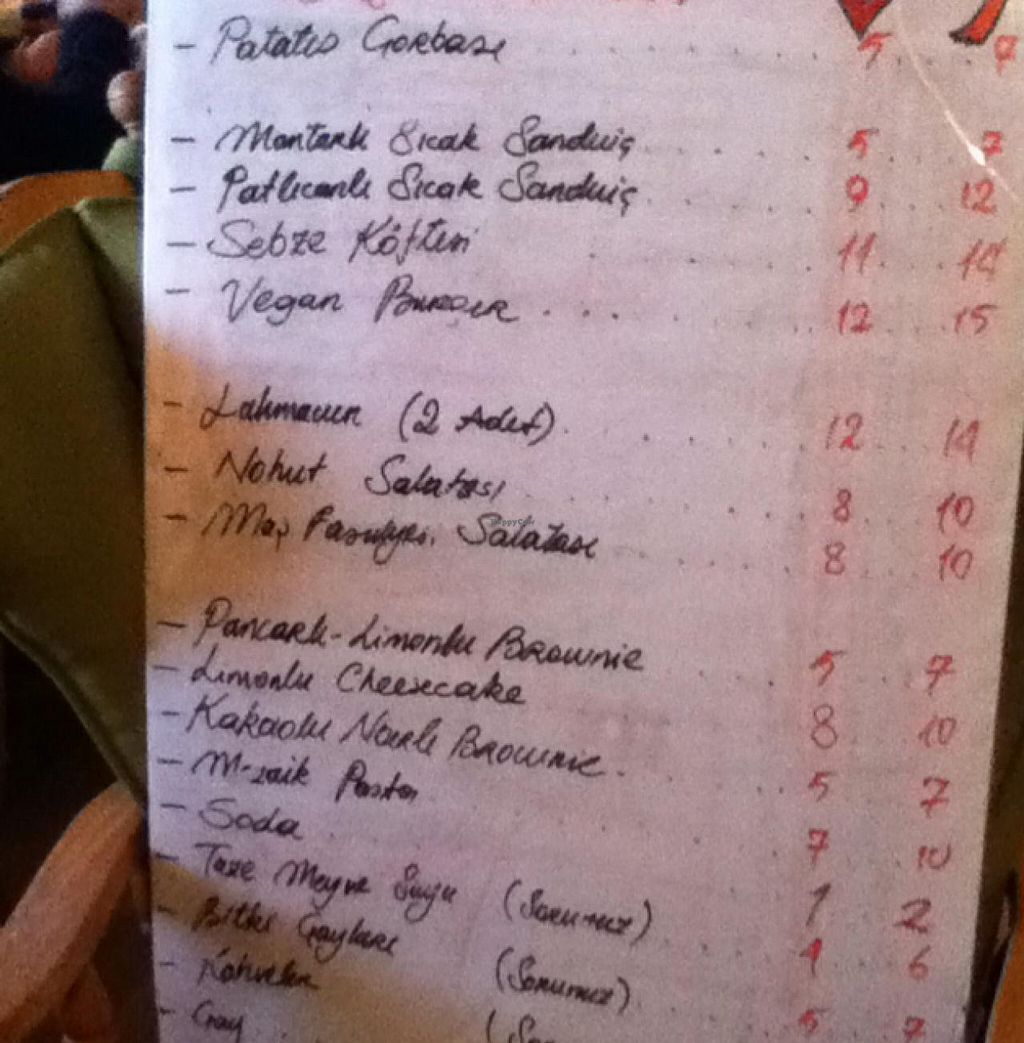 - Patates Çorbası 5 7
- Mantarlı Sıcak Sandviç 5 7
- Patlıcanlı Sıcak Sandviç 9 12
- Sebze Köftesi 11 14
- Vegan Burger 12 15
- Lahmacun (2 Adet) 12 14
- Nohut Salatası 8 10
- Maş Fasulyesi Salatası 8 10
- Pancarlı-Limonlu Brownie 5 7
- Limonlu Cheesecake 8 10
- Kakaolu Narlı Brownie 5 7
- Mozaik Pasta 7 10
- Soda 1 2
- Taze Meyve Suyu (Sorunuz) 4 6
- Bitki Çayları (Sorunuz) 5 7
- Kahveler
- Çay